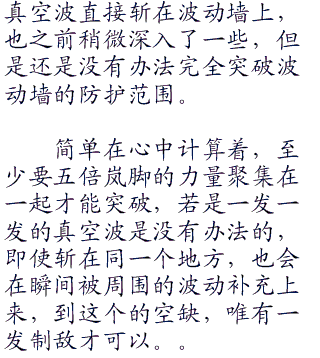 真空波直接斩在波动墙上，
也之前稍微深入了一些，但
是还是没有办法完全突破波
动墙的防护范围。
简单在心中计算着，至
少要五倍岚脚的力量聚集在
一起才能突破，若是一发一
发的真空波是没有办法的，
即使斩在同一个地方，也会
在瞬间被周围的波动补充上
来，到这个的空缺，唯有一
发制敌才可以。。